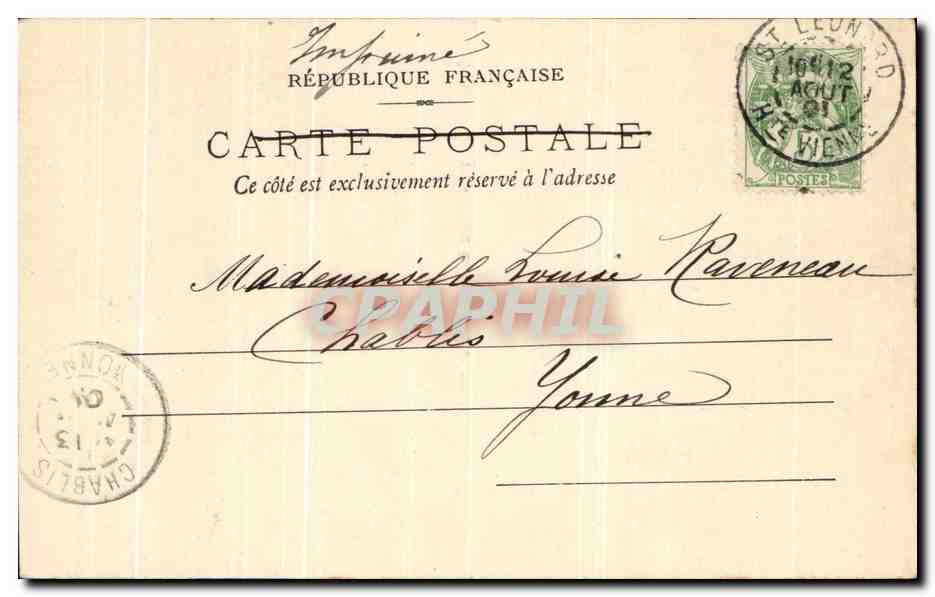 Imprimé
RÉPUBLIQUE FRANÇAISE
CARTE POSTALE
Ce côté est exclusivement réservé à l'adresse
ST LEONARD
12
AOUT
01
HTE VIENNE
POSTES
Mademoiselle Louise Raveneau
CPAPHIL
Chablis
Yonne
CHABLIS
13
01
YONNE